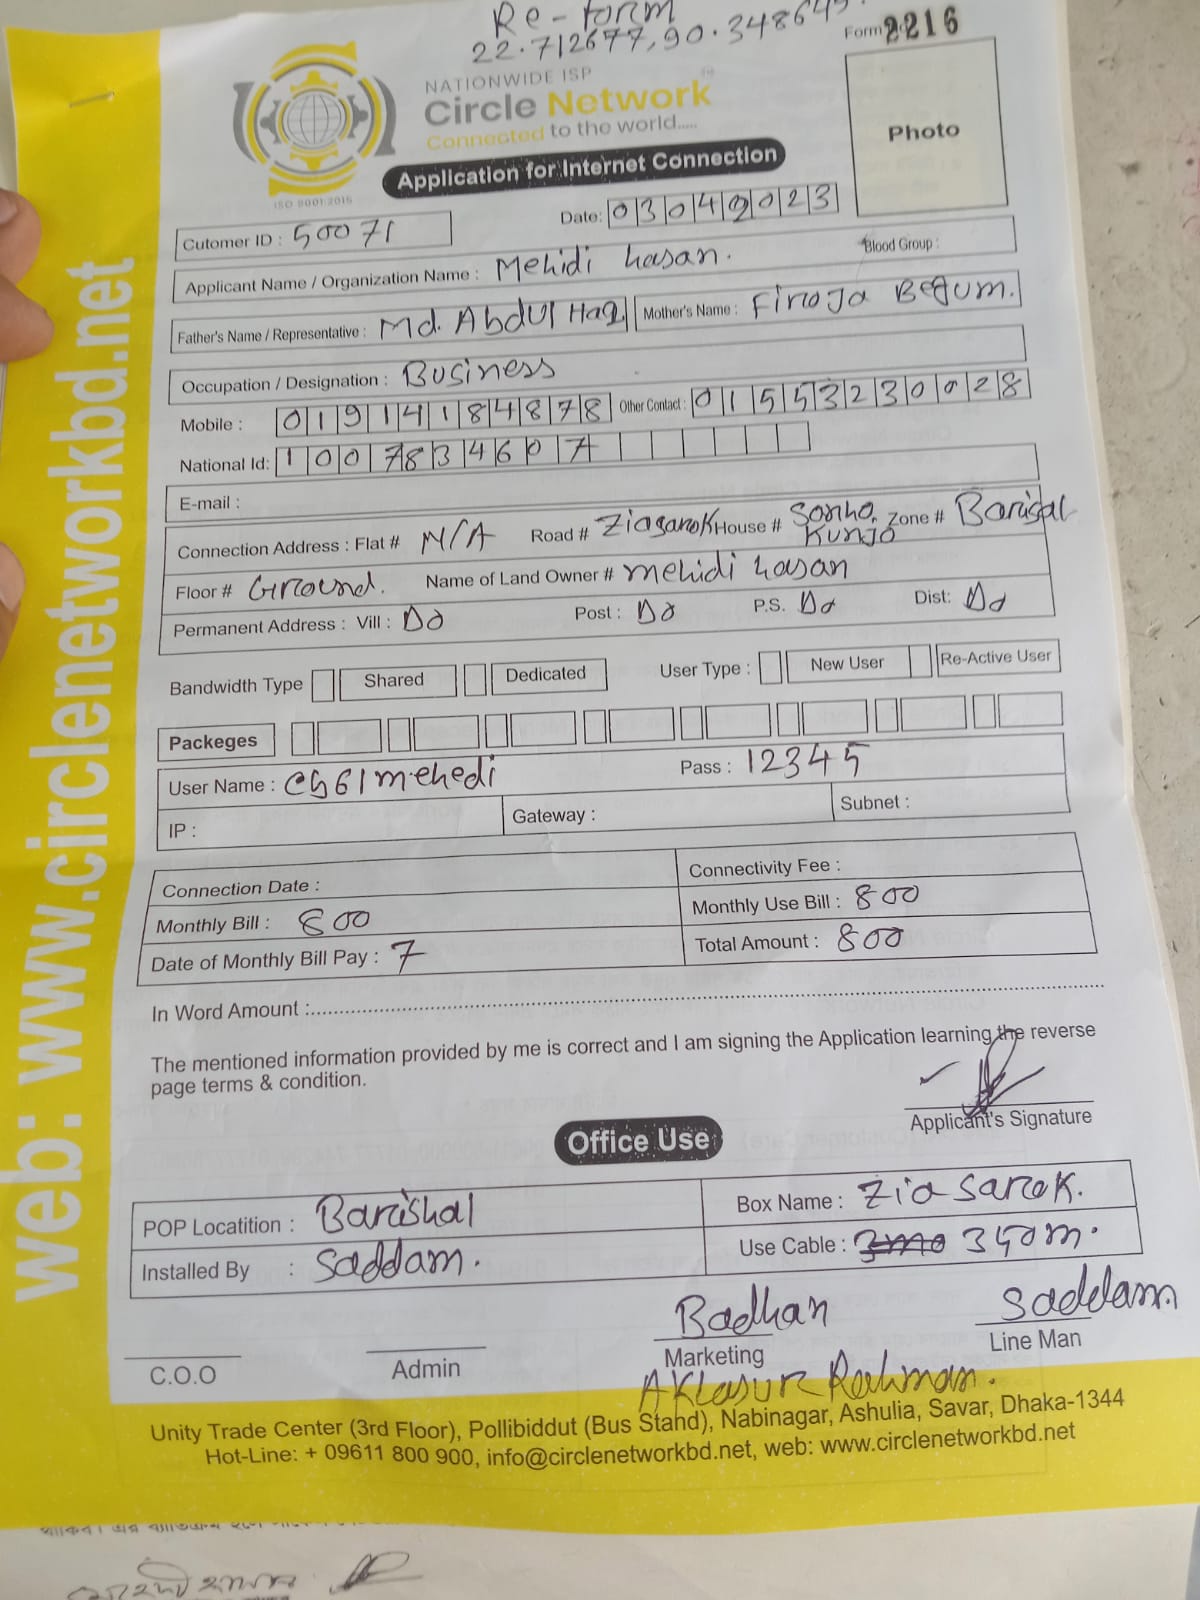 Re-form
22.712677,90.348645
Form 2216
NATIONWIDE ISP
Circle Network
Connected to the world.....
ISO 9001:2015
Application for Internet Connection
Photo
Date: 03042023
Cutomer ID : 50071
Applicant Name / Organization Name : Mehidi hasan. Blood Group :
Father's Name / Representative : Md. Abdul Haq Mother's Name : Firoja Begum.
Occupation / Designation : Business
Mobile : 01914184878 Other Contact : 01553230028
National Id: 1007834607
E-mail :
Connection Address : Flat # N/A Road # Ziasarok House # Sonho Kunjo Zone # Barisal
Floor # Ground. Name of Land Owner # mehidi hasan
Permanent Address : Vill : Do Post : Do P.S. Do Dist: Do
Bandwidth Type Shared Dedicated User Type : New User Re-Active User
Packeges
User Name : cb61mehedi Pass : 12345
IP : Gateway : Subnet :
Connection Date : Connectivity Fee :
Monthly Bill : 800 Monthly Use Bill : 800
Date of Monthly Bill Pay : 7 Total Amount : 800
In Word Amount :
The mentioned information provided by me is correct and I am signing the Application learning the reverse
page terms & condition.
Applicant's Signature
Office Use
POP Locatition : Barishal Box Name : Zia sarok.
Installed By : Saddam. Use Cable : 350m.
Badhan Saddam.
C.O.O Admin Marketing Line Man
Aklasur Rahman.
Unity Trade Center (3rd Floor), Pollibiddut (Bus Stand), Nabinagar, Ashulia, Savar, Dhaka-1344
Hot-Line: + 09611 800 900, info@circlenetworkbd.net, web: www.circlenetworkbd.net
web: www.circlenetworkbd.net